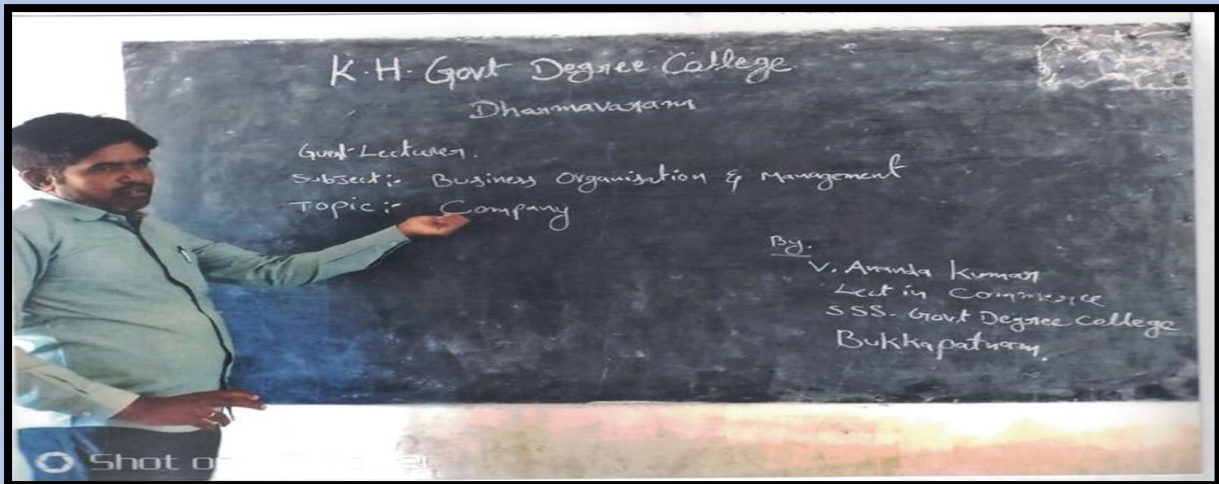 K.H. Govt Degree College
Dharmavaram
Guest Lecturer.
Subject:- Business Organisation & Management
Topic:- Company
By.
V. Ananda Kumar
Lect in Commerce
SSS. Govt Degree College
Bukkapatnam.
Shot